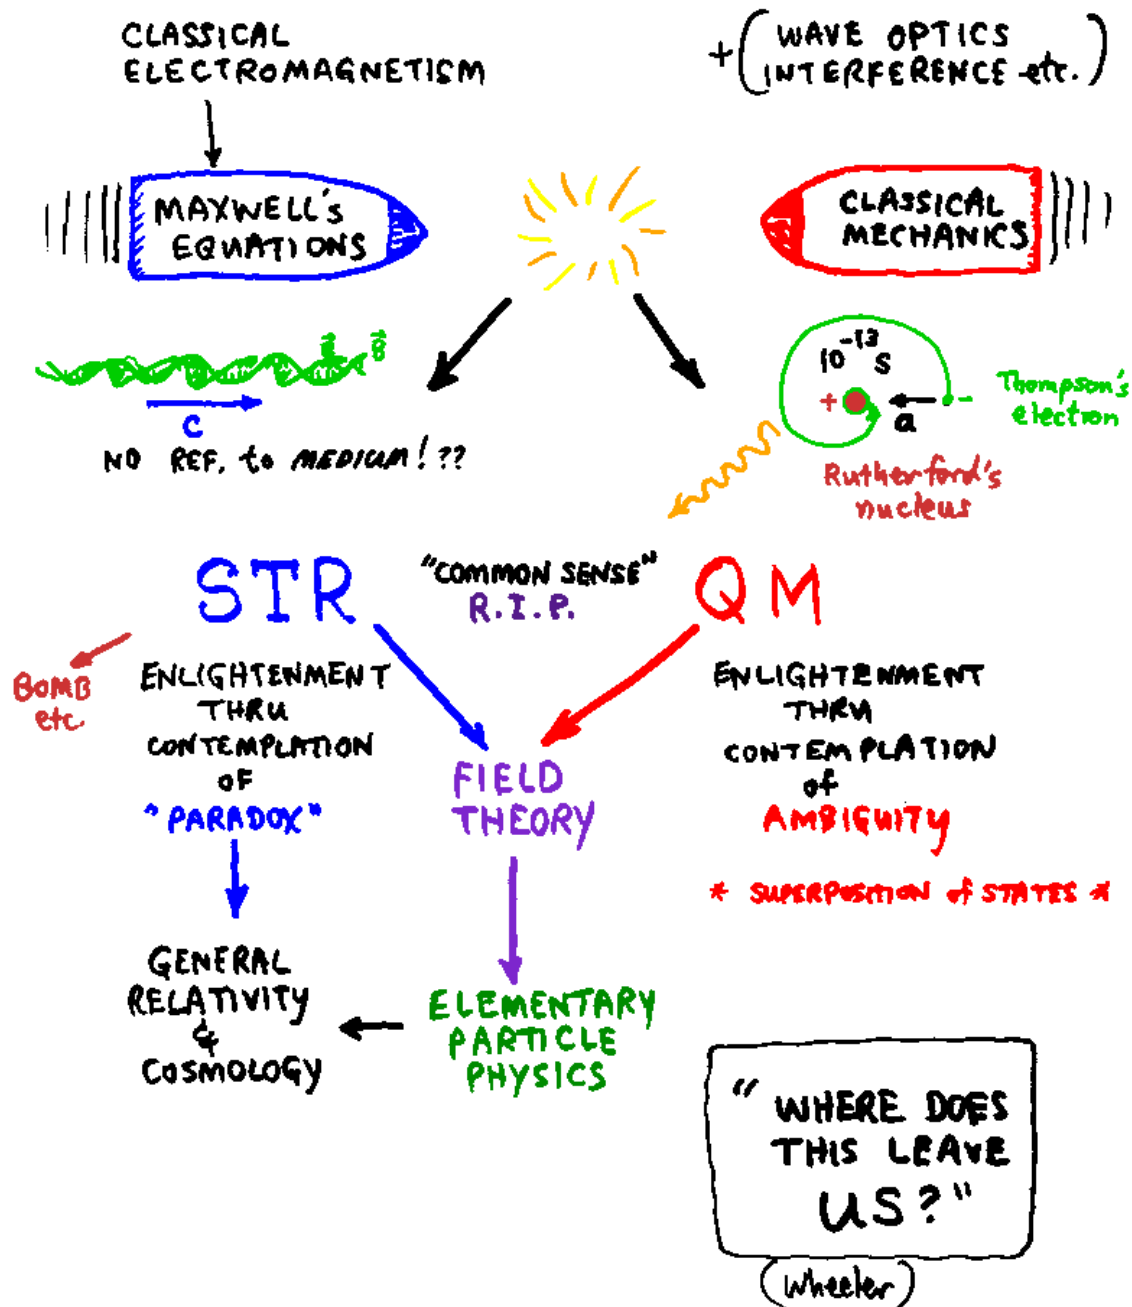 CLASSICAL
ELECTROMAGNETISM
+ (WAVE OPTICS
INTERFERENCE etc.)
MAXWELL'S
EQUATIONS
CLASSICAL
MECHANICS
E B
C
NO REF. to MEDIUM!??
10^-13 s
+
a
-
Thompson's
electron
Rutherford's
nucleus
STR
"COMMON SENSE"
R.I.P.
QM
BOMB
etc.
ENLIGHTENMENT
THRU
CONTEMPLATION
OF
"PARADOX"
FIELD
THEORY
ENLIGHTENMENT
THRU
CONTEMPLATION
of
AMBIGUITY
* SUPERPOSITION of STATES *
GENERAL
RELATIVITY
&
COSMOLOGY
ELEMENTARY
PARTICLE
PHYSICS
"WHERE DOES
THIS LEAVE
US?"
(Wheeler)